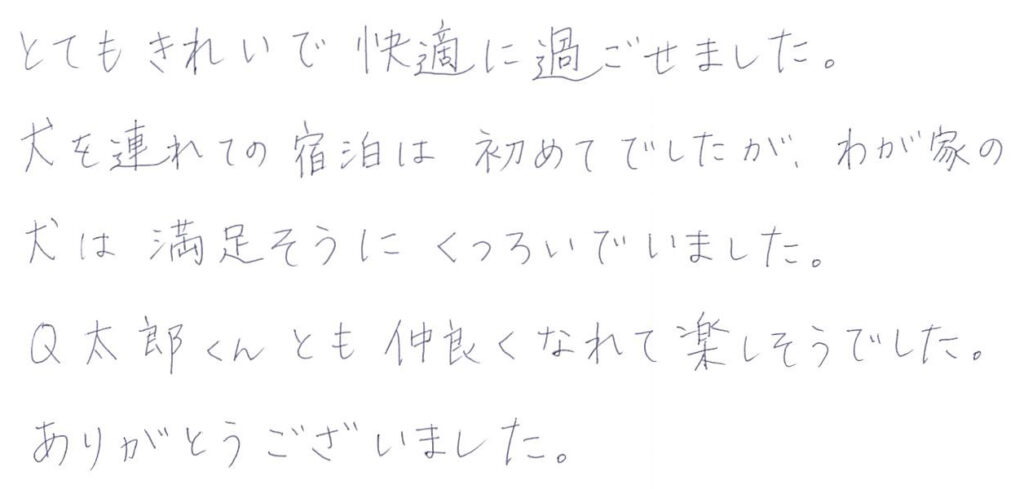 とてもきれいで快適に過ごせました。
犬を連れての宿泊は初めてでしたが、わが家の
犬は満足そうにくつろいでいました。
Q太郎くんとも仲良くなれて楽しそうでした。
ありがとうございました。